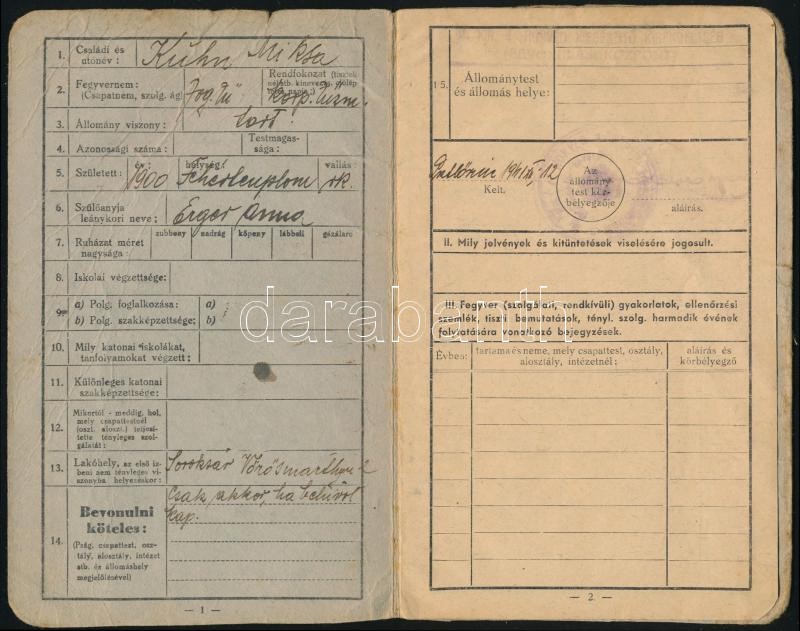 1. Családi és utónév: Kühn Miksa
2. Fegyverneme: (Csapatnem, szolg. ág)
Rendfokozat
3. Állomány viszony: tart.
4. Azonossági száma:
Testmagassága:
5. Született: év: 1900 helység: vallás: rk.
6. Szülőanyja leánykori neve: Erger Anna
7. Ruházat méret nagysága: zubbony nadrág köpeny lábbeli gázálarc
8. Iskolai végzettsége:
9. a) Polg. foglalkozása: a)
b) Polg. szakképzettsége: b)
10. Mily katonai iskolákat, tanfolyamokat végzett:
11. Különleges katonai szakképzettsége:
12. Mikortól - meddig, hol, mely csapattestnél (oszt. aloszt.) teljesítette tényleges szolgálatát:
13. Lakóhely, az első ízbeni nem tényleges viszonyba helyezéskor: Soroksár
14. Bevonulni köteles:
(Pság. csapattest, osztály, alosztály, intézet stb. és állomáshely megjelölésével)
Csak akkor, ha behívót
kap.
— 1 —
15. Állománytest és állomás helye:
Kelt.
Az állomány test körbélyegzője
aláírás.
II. Mily jelvények és kitüntetések viselésére jogosult.
III. Fegyver (szolgálati, rendkívüli) gyakorlatok, ellenőrzési
szemlék, tiszti bemutatások, tényl. szolg. harmadik évének
folytatására vonatkozó bejegyzések.
Évben: tartama és neme, mely csapattest, osztály, alosztály, intézetnél: aláírás és körbélyegző
— 2 —
darabanth.com